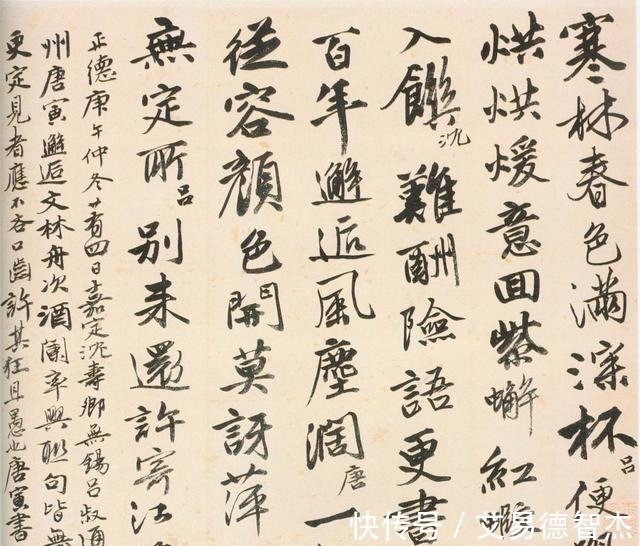 寒林春色滿深杯呂便
烘烘煖意回紫蠏紅
入饌沈難酬險語更書
百年邂逅風塵濶唐一
從容顏色開莫訝萍
無定所呂別來還許寄江
正德庚午仲冬廿有四日嘉定沈壽卿無錫呂叔通
州唐寅邂逅文林舟次酒闌率興聯句皆無
更定見者應不吝口齒許其狂且愚也唐寅書
快传号 / 艾易德智杰